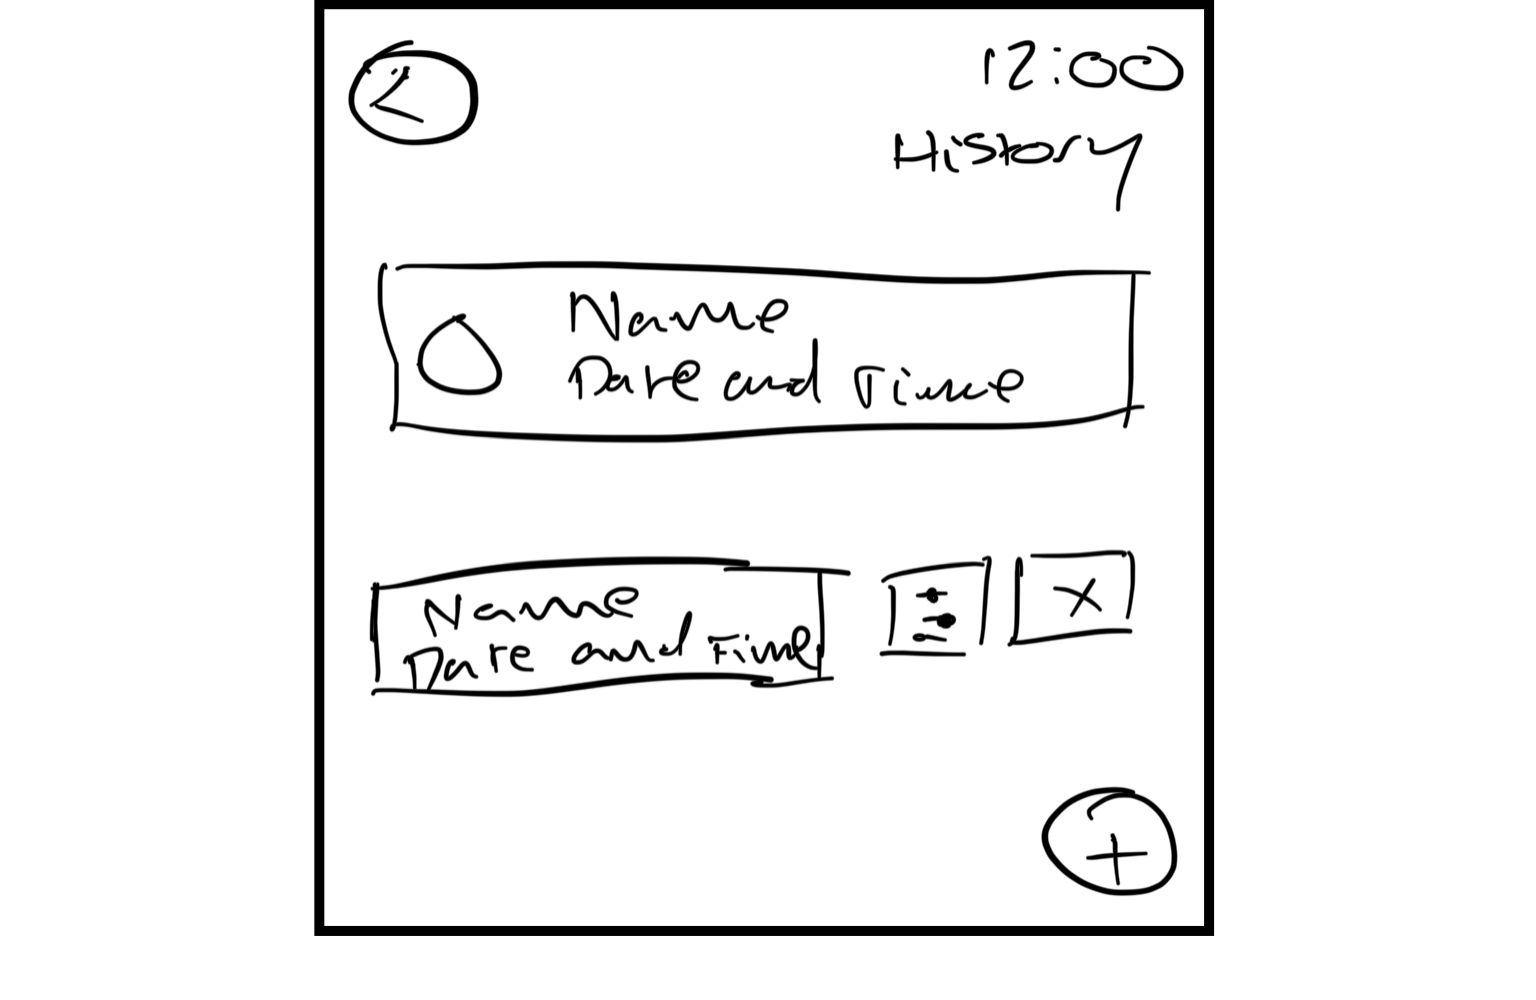 <
12:00
History
Name
Date and Time
Name
Date and Time
X
+